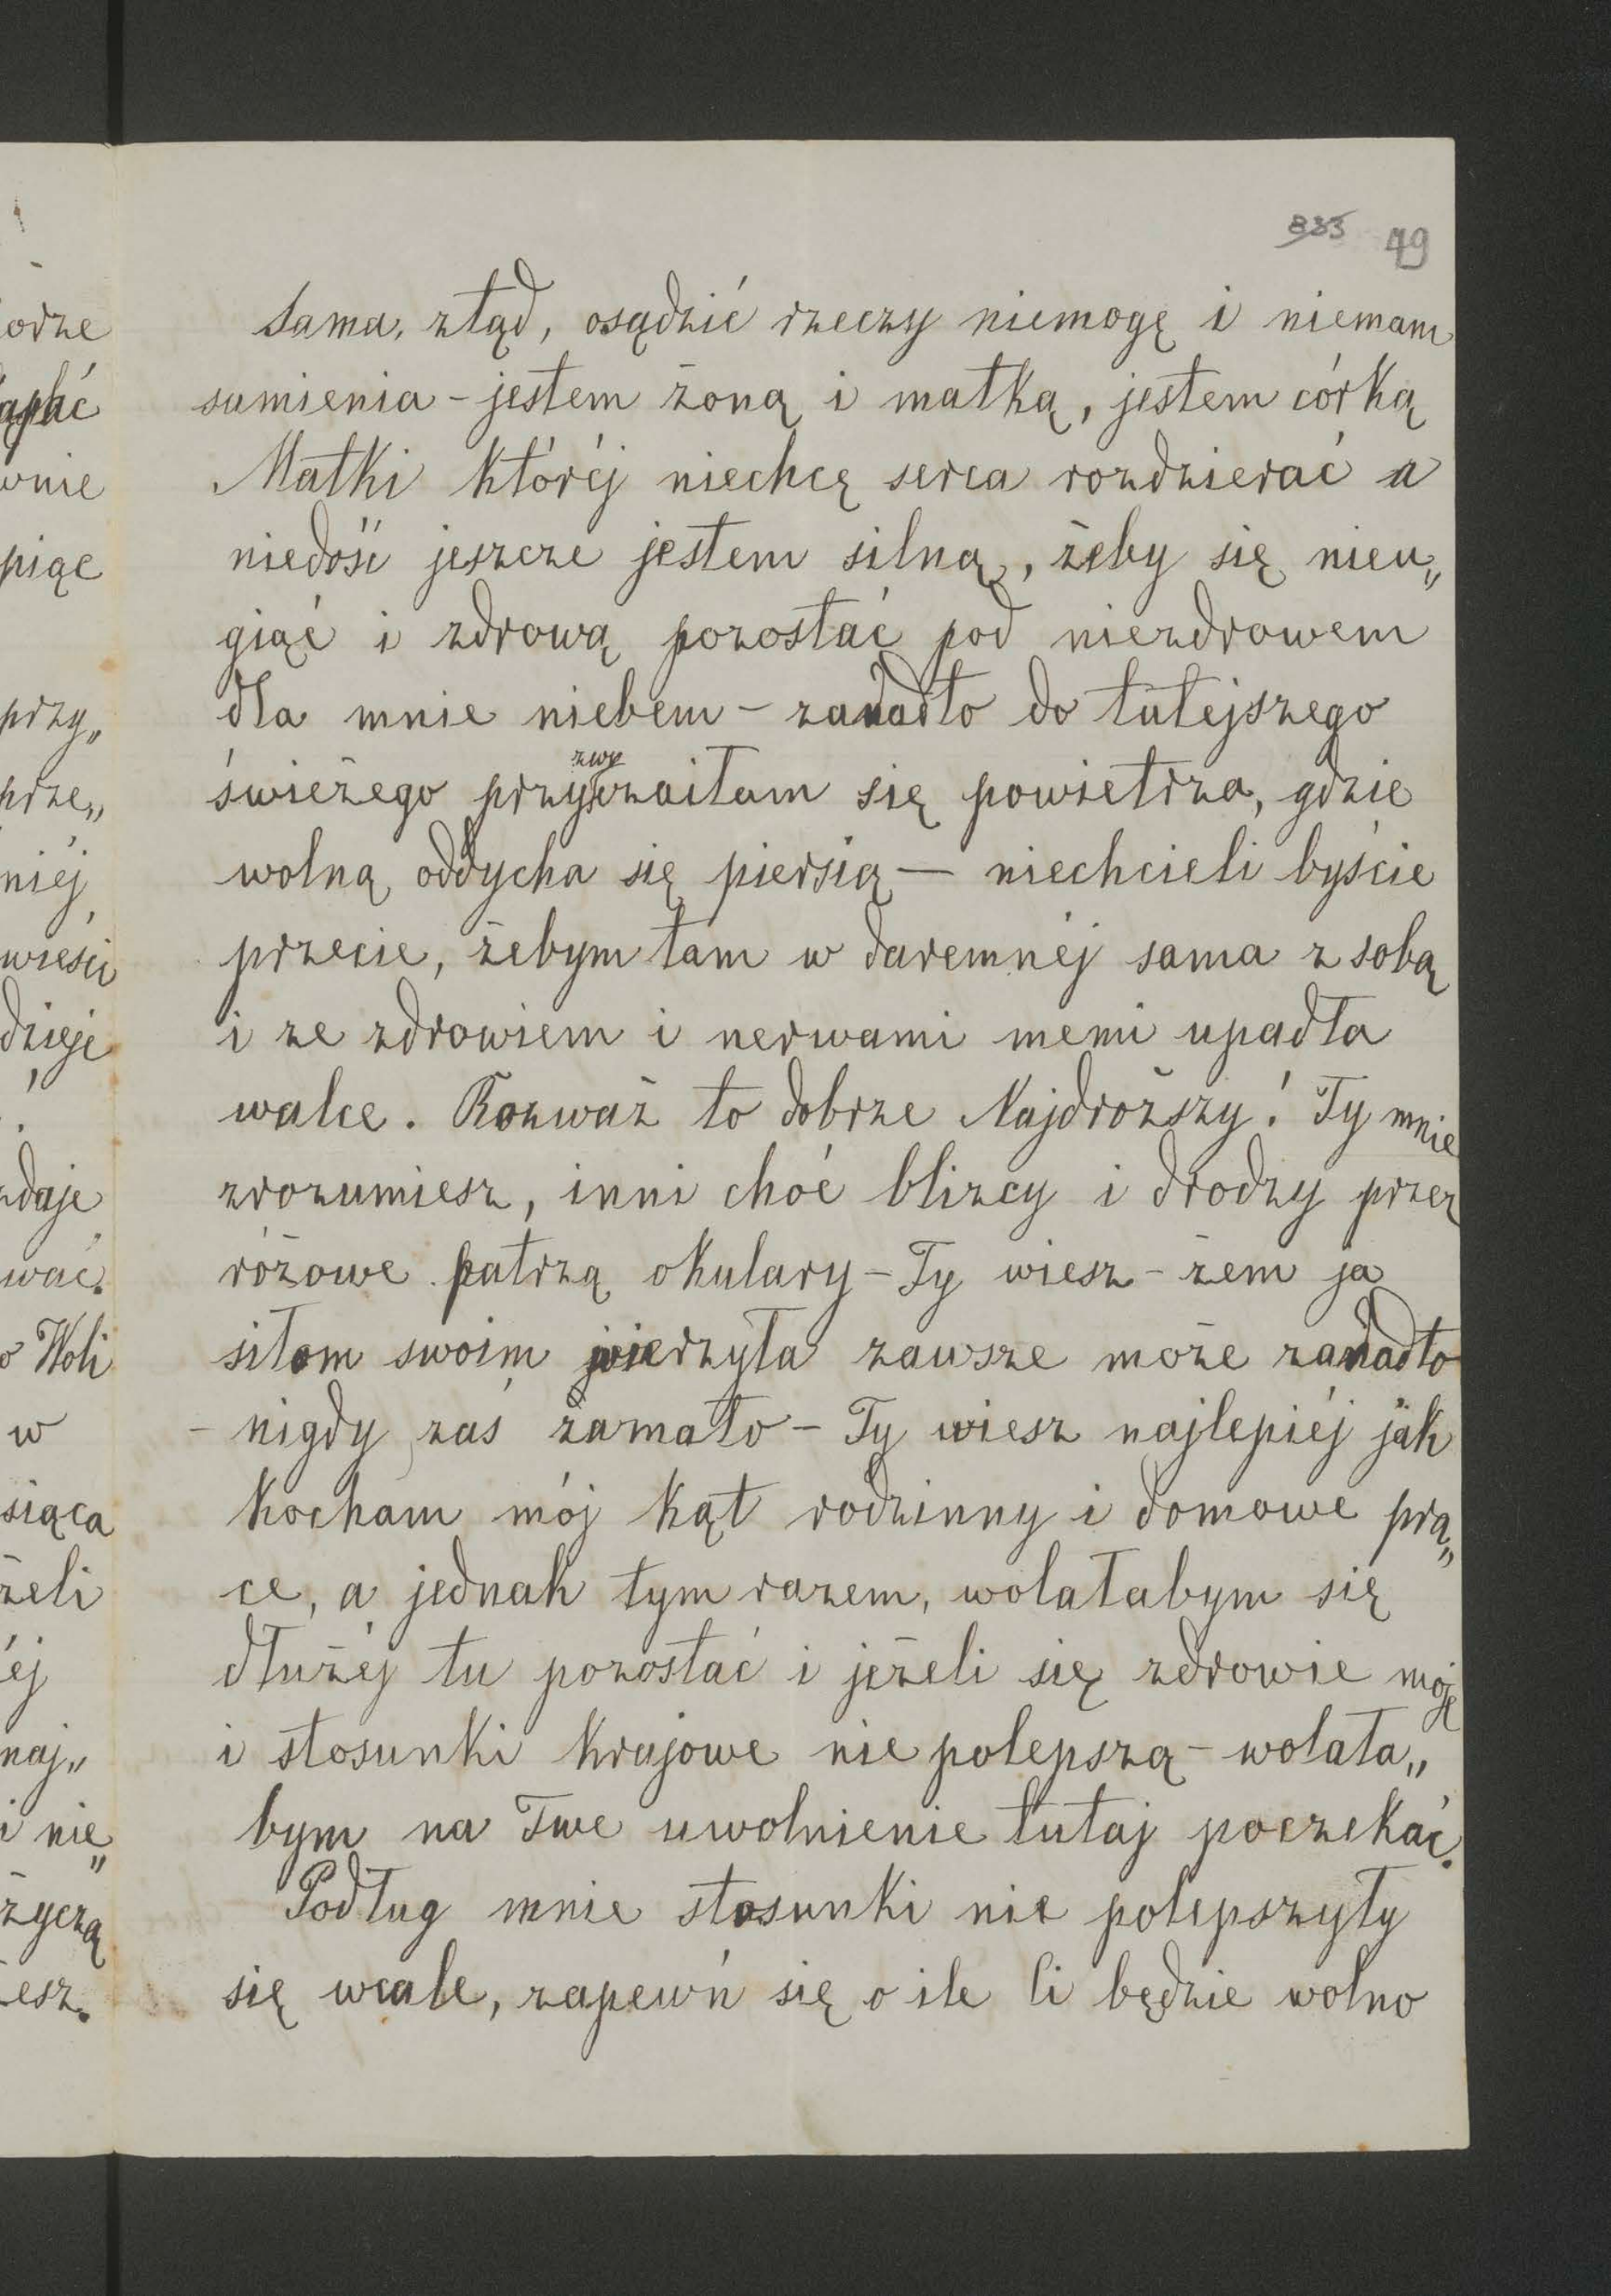 833 49
Sama, ztąd, osądzić rzeczy niemogę i niemam
sumienia - jestem żoną i matką, jestem córką
Matki któréj niechcę serca rozdzierać a
niedość jeszcze jestem silną, żeby się nieu„
giąć i zdrową pozostać pod niezdrowem
dla mnie niebem - zanadto do tutejszego
świeżego przyzwyczaiłam się powietrza, gdzie
wolną oddycha się piersią — niechcieli byście
przecie, żebym tam w daremnéj sama z sobą
i ze zdrowiem i nerwami memi upadła
walce. Rozważ to dobrze Najdroższy! Ty mnie
zrozumiesz, inni choć blizcy i drodzy przez
różowe patrzą okulary - Ty wiesz - żem ja
siłom swoim wierzyła zawsze może zanadto
- nigdy zaś zamało - Ty wiesz najlepiéj jak
kocham mój kąt rodzinny i domowe pra„
ce, a jednak tym razem, wolałabym się
dłużéj tu pozostać i jeżeli się zdrowie moje
i stosunki krajowe nie polepszą - wolała„
bym na Twe uwolnienie tutaj poczekać.
Podług mnie stosunki nie polepszyły
się wcale, zapewń się o ile li będzie wolno